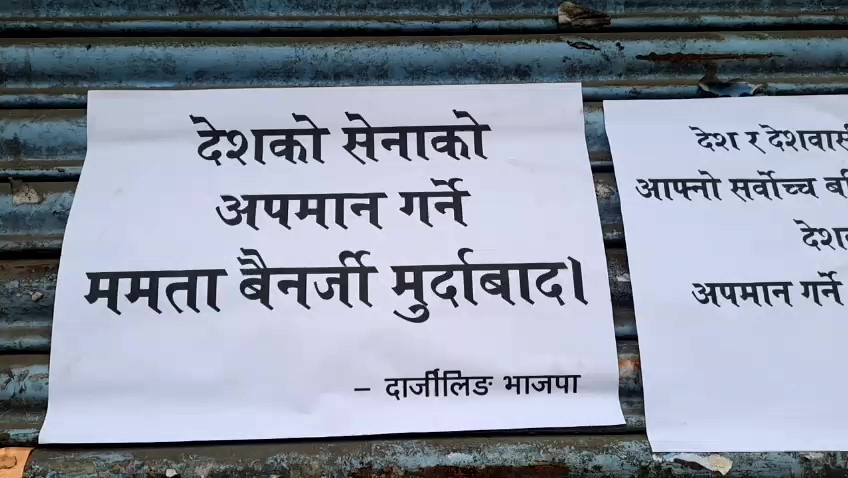 देशको सेनाको
अपमान गर्ने
ममता बैनर्जी मुर्दाबाद।
– दार्जीलिङ भाजपा
देश र
आफ्नो सर्वोच्च
अपमान गर्ने